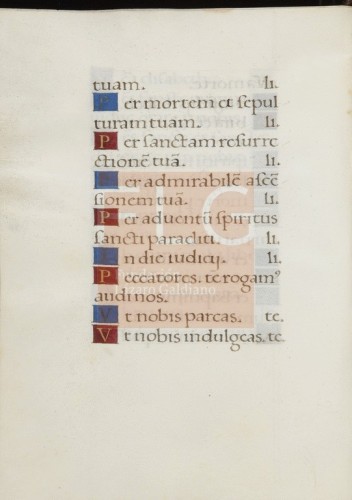 tuam. li.
Per mortem et sepul
turam tuam. li.
Per sanctam resurre
ctionē tuā. li.
Per admirabilē ascē
sionem tuā. li.
Per adventū spiritus
sancti paracliti. li.
In die iudicij. li.
Peccatores. te rogam⁹
audi nos.
Ut nobis parcas. te.
Vt nobis indulgeas. te.
FLG
Lázaro Galdiano